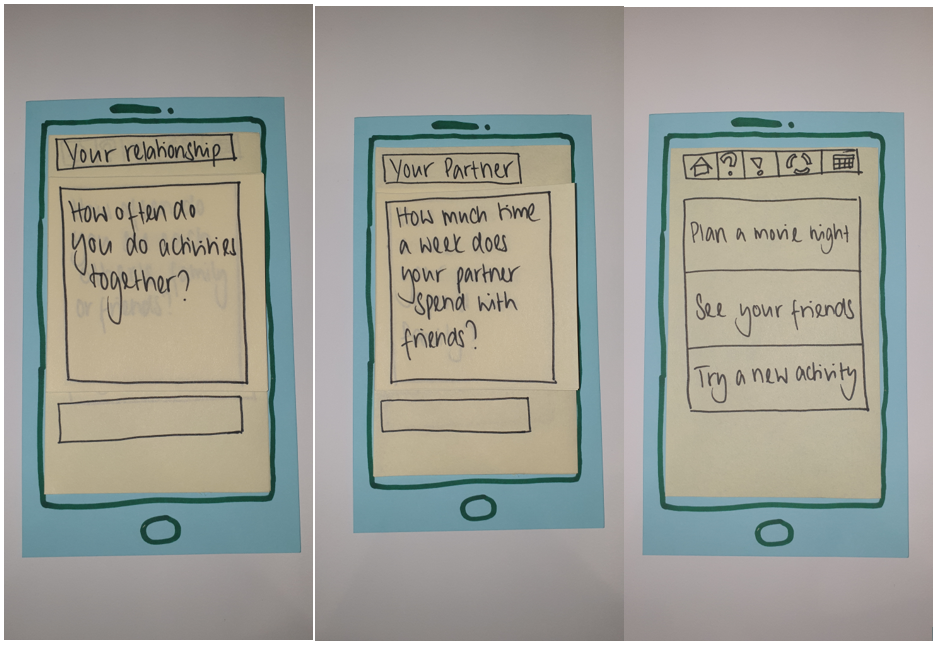 Your relationship
How often do
you do activities
together?
Your Partner
How much time
a week does
your partner
spend with
friends?
? !
Plan a movie night
See your friends
Try a new activity